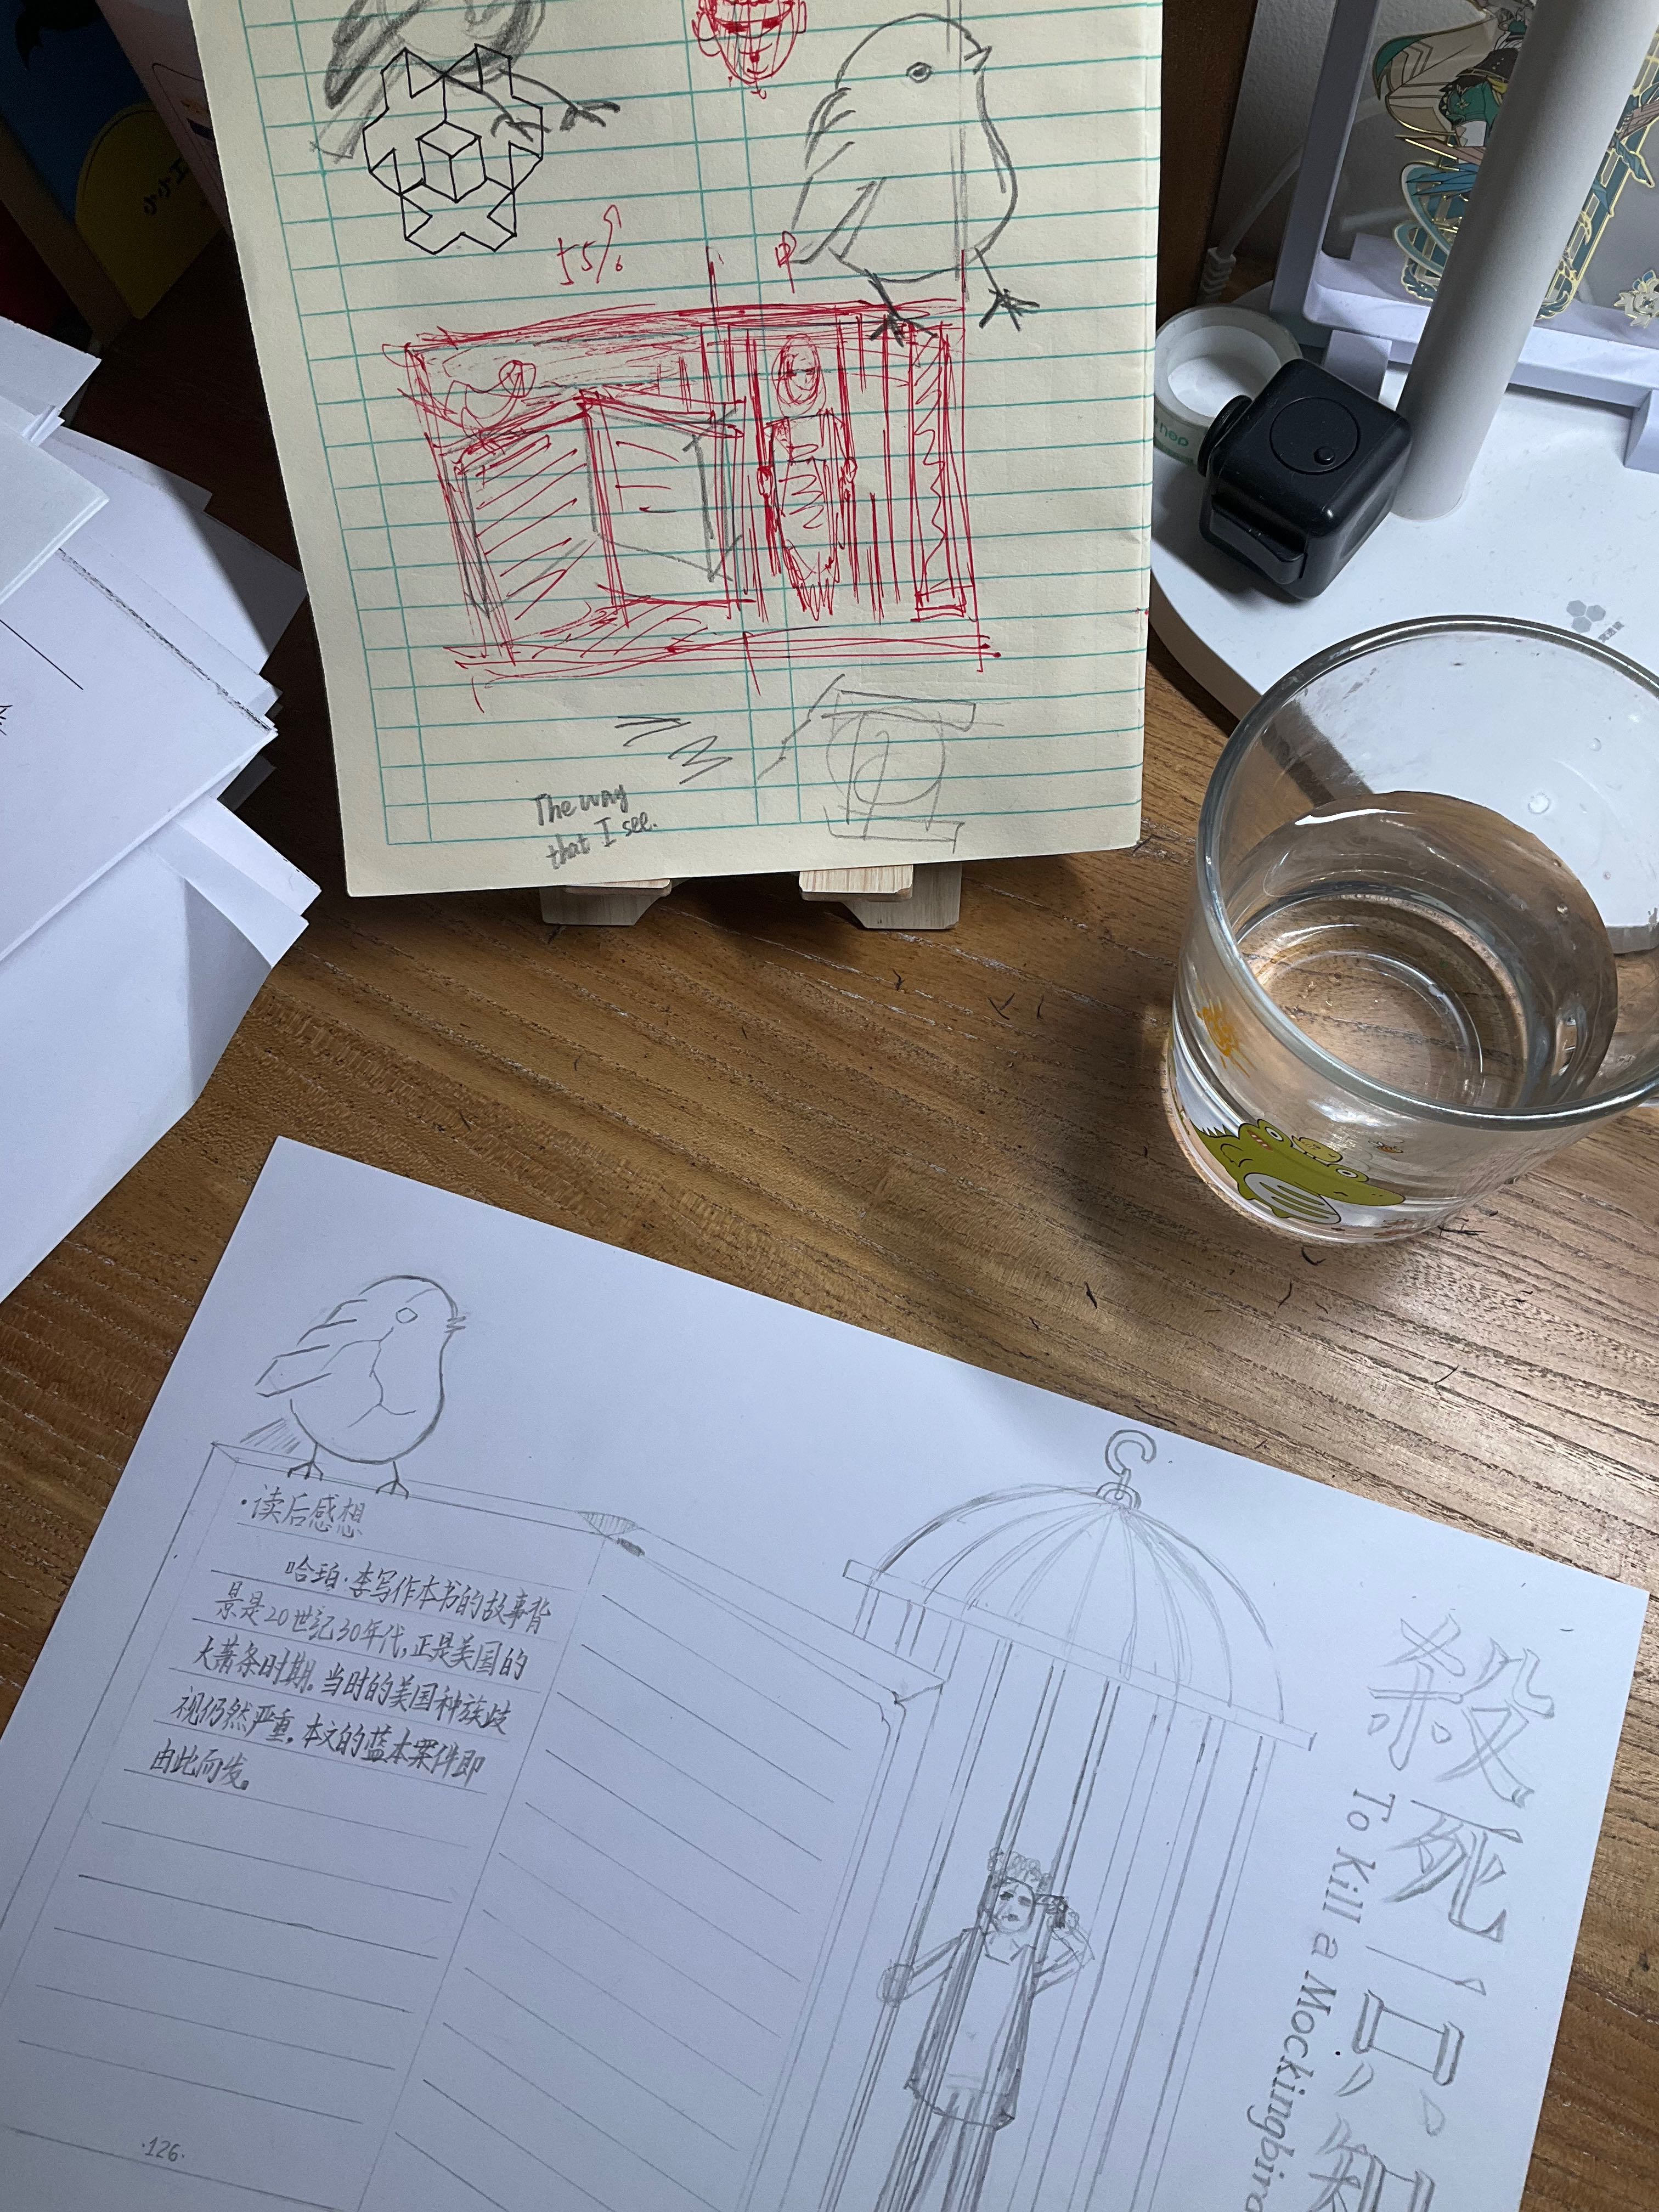 The way
that I see.
·读后感想
哈珀·李写作本书的故事背
景是20世纪30年代,正是美国的
大萧条时期。当时的美国种族歧
视仍然严重。本文的蓝本案件即
由此而发。
·126·
殺死一只知
To Kill a Mockingbird